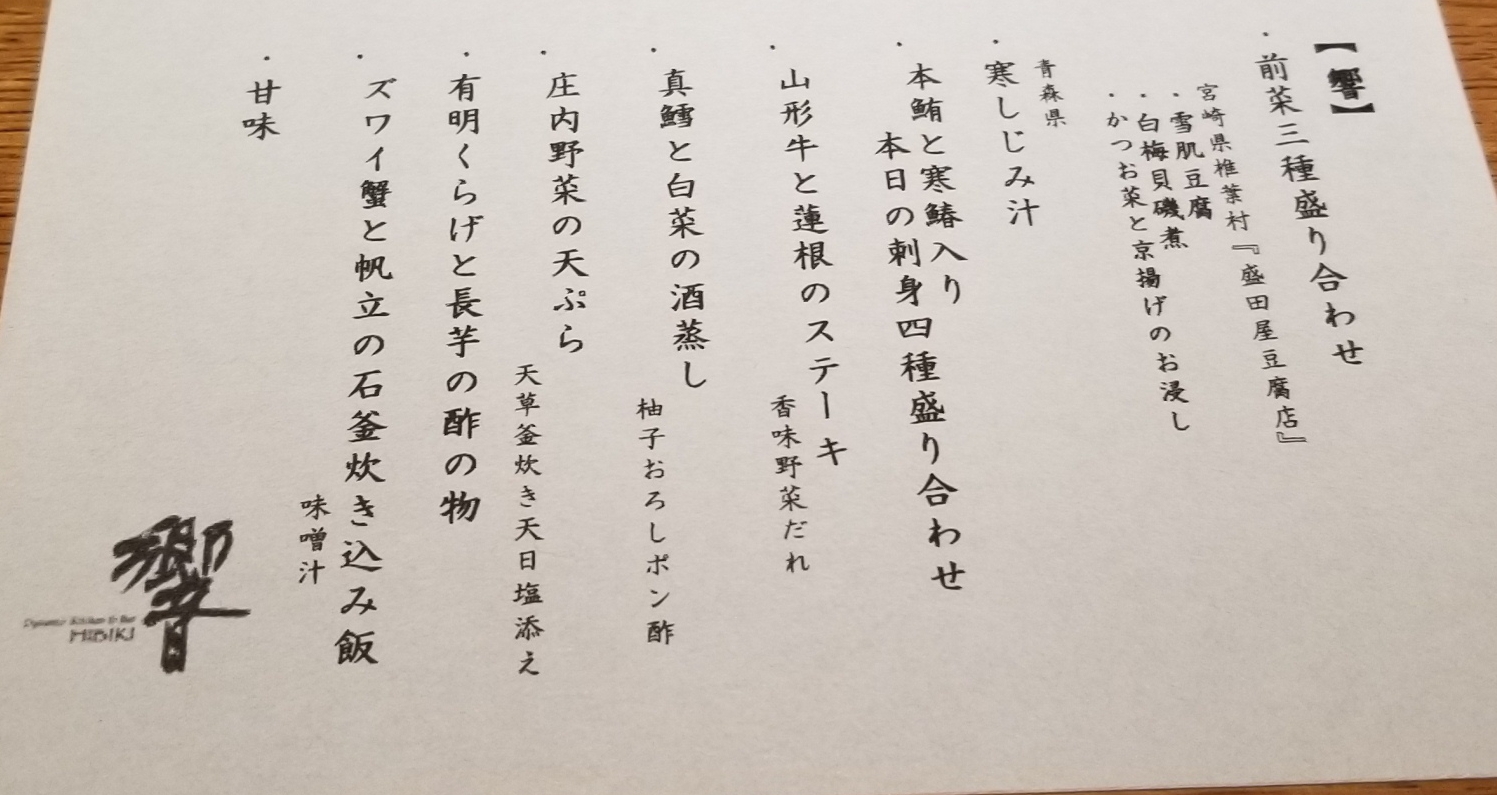 【響】
・前菜三種盛り合わせ
宮崎県椎葉村『盛田屋豆腐店』
・雪肌豆腐
・白梅貝磯煮
・かつお菜と京揚げのお浸し
青森県
・寒しじみ汁
・本鮪と寒鰆入り
本日の刺身四種盛り合わせ
・山形牛と蓮根のステーキ
香味野菜だれ
・真鱈と白菜の酒蒸し
柚子おろしポン酢
・庄内野菜の天ぷら
天草釜炊き天日塩添え
・有明くらげと長芋の酢の物
・ズワイ蟹と帆立の石釜炊き込み飯
味噌汁
・甘味
響
Dynamic Kitchen & Bar
HIBIKI